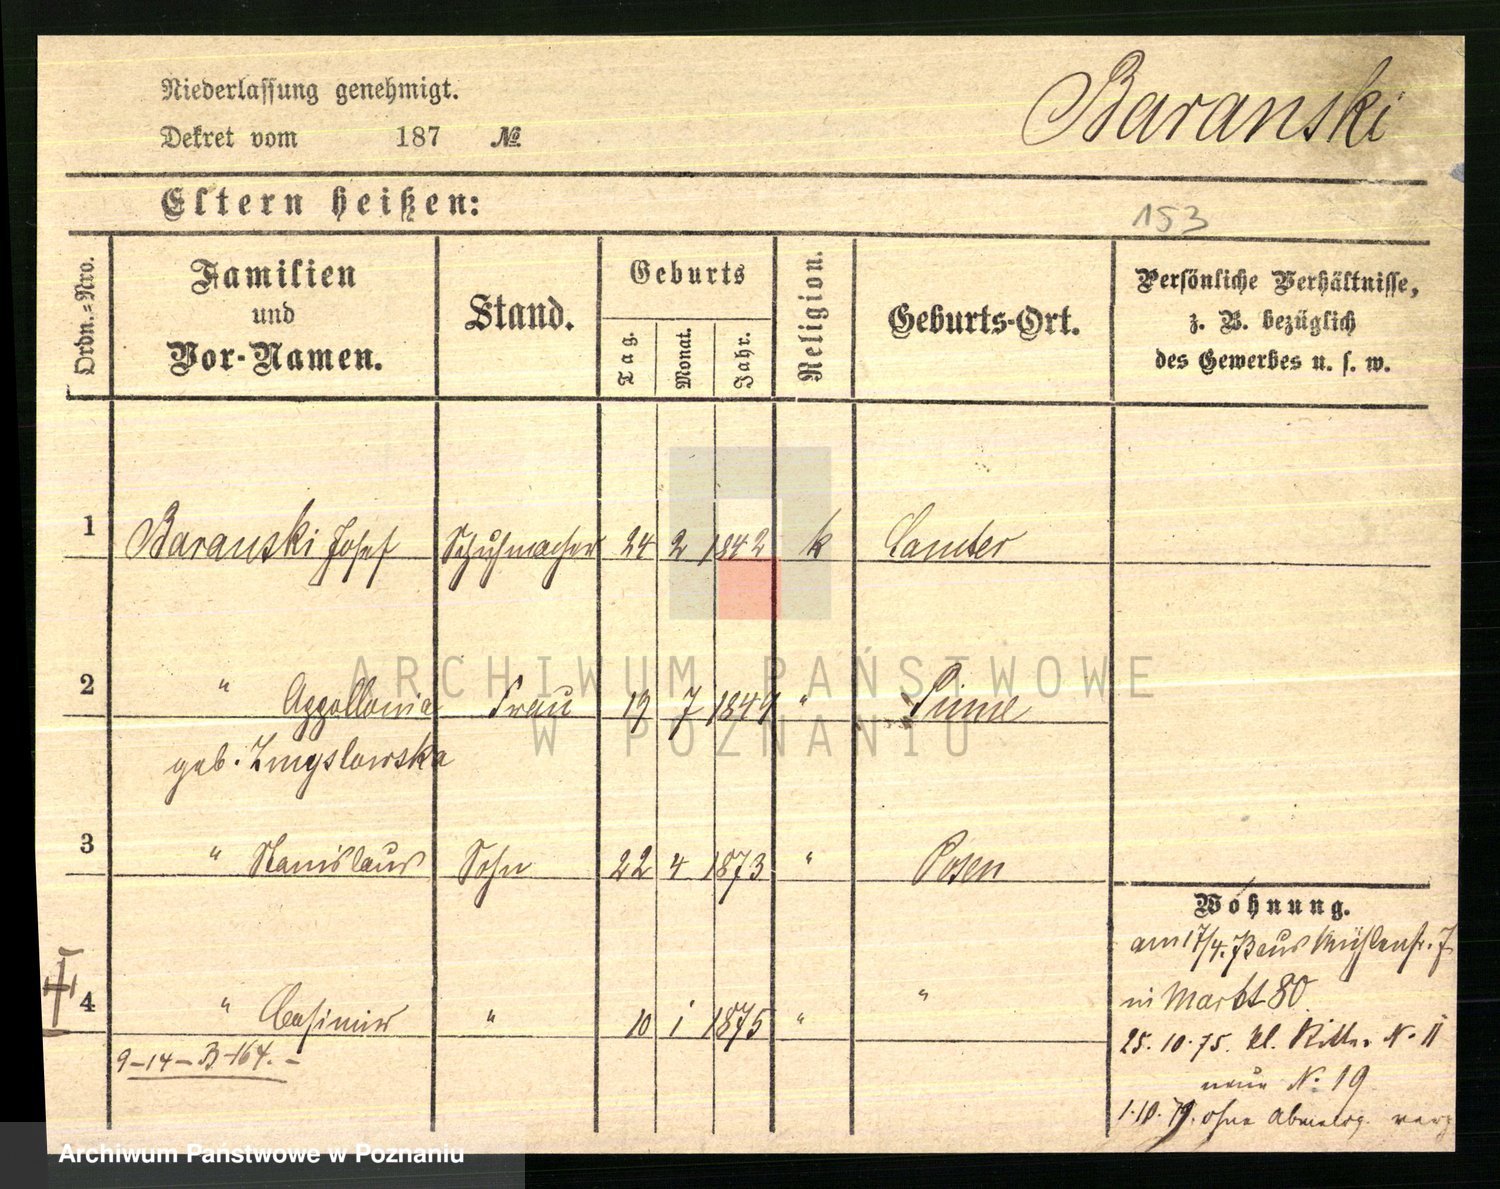 Niederlassung genehmigt.
Baranski
Dekret vom 187 №
Eltern heißen:
153
Ordn.-Nro.
Familien
und
Vor-Namen.
Stand.
Geburts
Tag.
Monat.
Jahr.
Religion.
Geburts-Ort.
Persönliche Verhältnisse,
z. B. bezüglich
des Gewerbes u. s. w.
1 Baranski Josef Schuhmacher 24 2 1842 k Samter
ARCHIWUM PAŃSTWOWE
W POZNANIU
2 " Appollonia Frau 19 7 1849 " Pinne
geb. Zmyslowska
3 " Stanislaus Sohn 22 4 1873 " Posen
Wohnung.
am 17/4. 7 aus Mühlenstr. 7
in Markt 80
4 " Casimir " 10 1 1875 " "
9-14-B-164.-
25. 10. 75. kl. Ritter N. 11
neue N. 19
1.10.79. ohne Abmeldg. verz
Archiwum Państwowe w Poznaniu